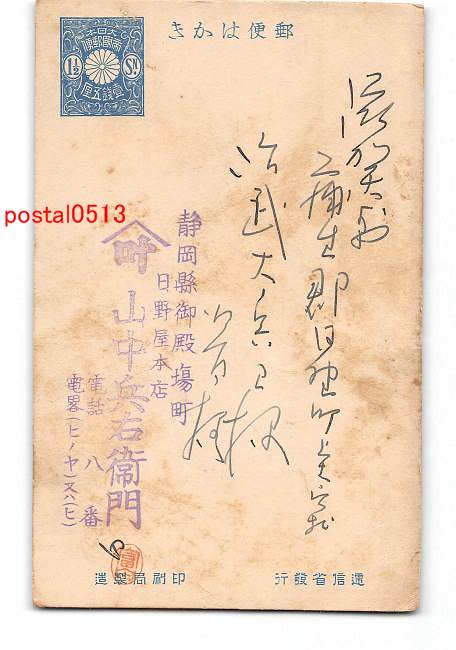 郵便はかき
大日本
帝國郵便
1½ Sn.
壹錢五厘
滋賀縣
蒲生郡日野町
postal0513
静岡縣御殿塲町
日野屋本店
叶
山中兵右衛門
電話八番
電畧(ヒノヤ)又ハ(ヒ)
遞信省發行
印刷局製造